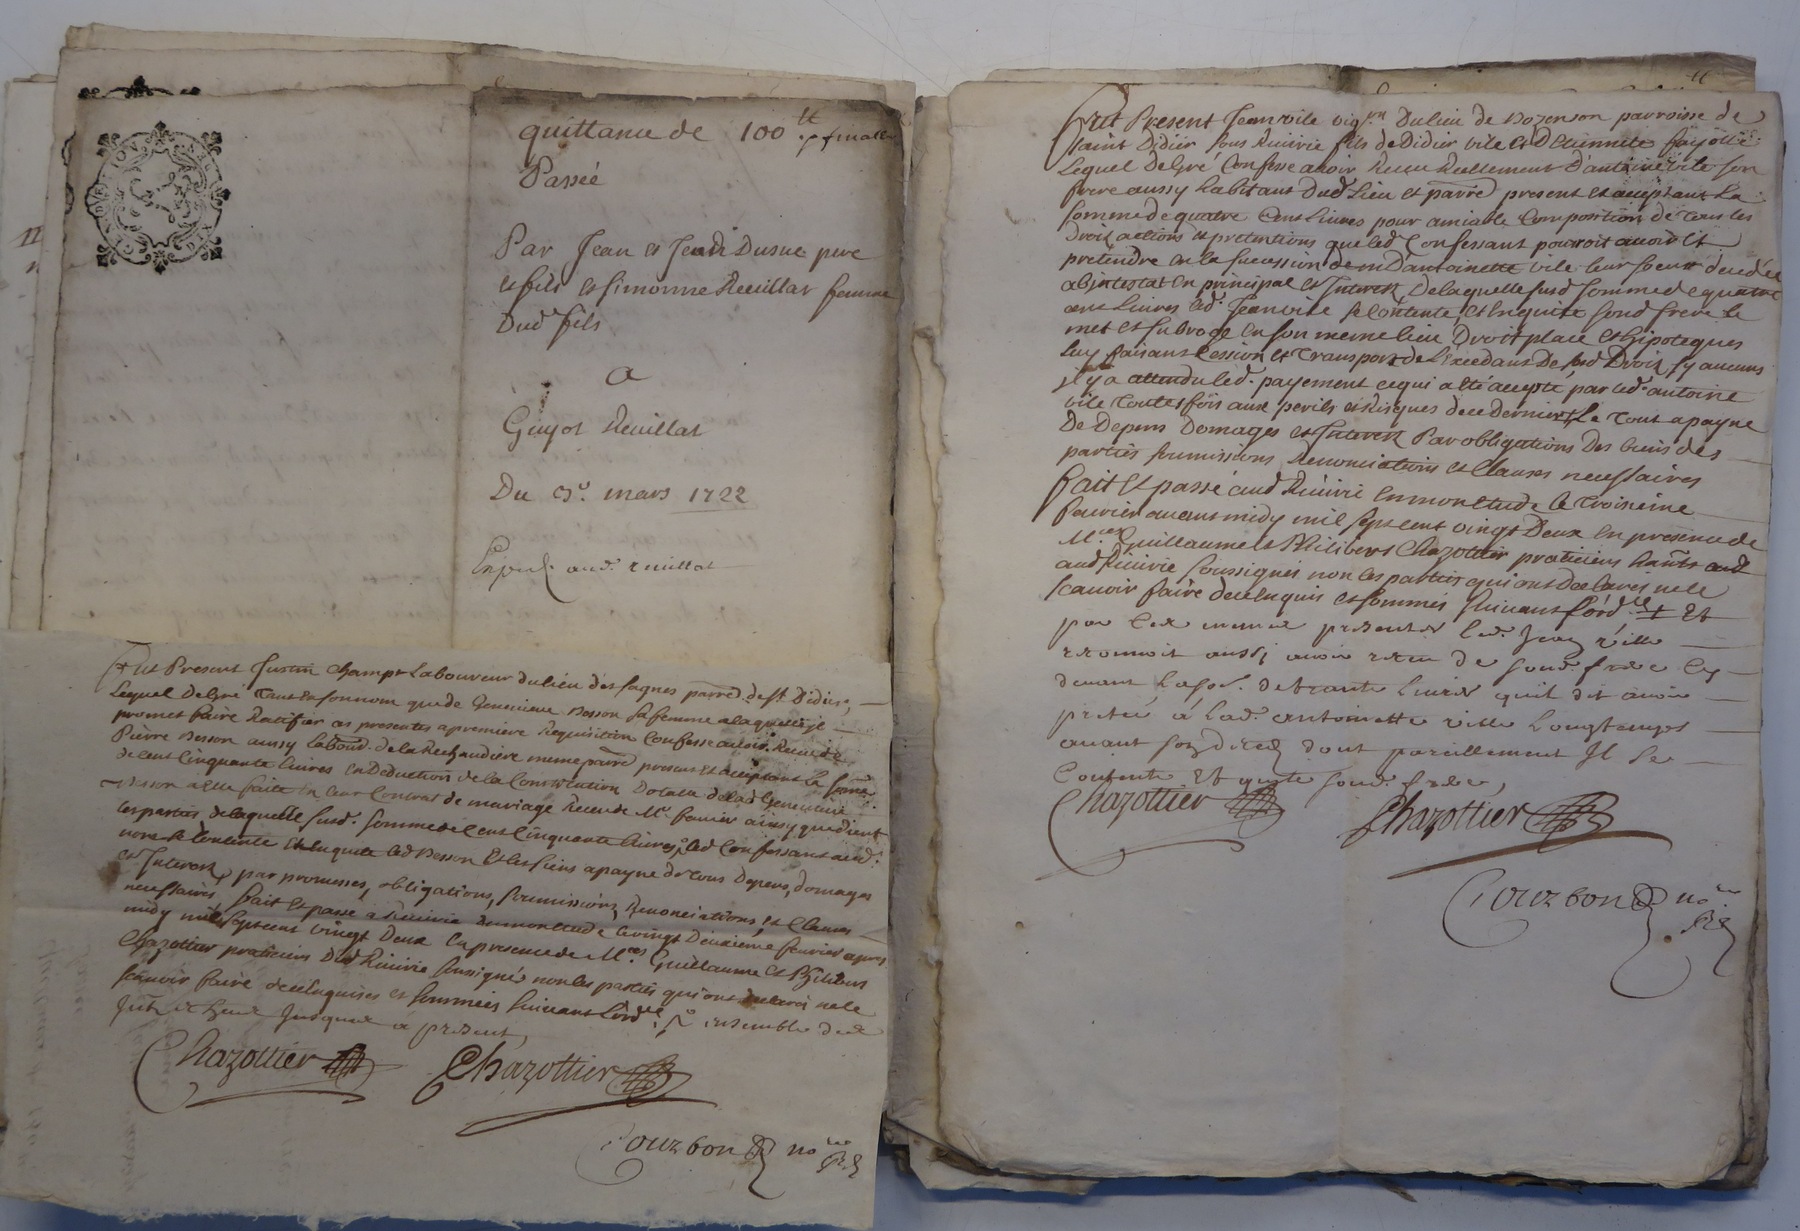 quittance de 100 tt p finalle
Passée
Par Jean et Jean Dusuc pere
et fils et Simonne Reuillat femme
Dud fils
A
Guyot Reuillat
Du 3e. mars 1722
Exped. aud. reuillat
Fut Present Justin Champt Laboureur du lieu des fagnes parre. de st Didier,
Lequel De gré tant en son nom que de Genevieve Besson sa femme a laquelle il
promet faire Ratifier ces presentes a premiere Requisition Confesse avoir Receu de
Pierre Besson aussy labour. de la Rechaudiere meme parre present et acceptant la somme
de cent Cinquante livres en Deduction de la Constitution Dotalle de lad Genevieve
Besson a elle faite en leur Contrat de mariage Receu de Mr. ainsy que dient
les parties, de laquelle susd. somme de cent Cinquante livres, led Confessant aud.
nom se Contente et en quitte led Besson et les siens a payne de tous Depens, domages
et Interest, par promesses, obligations, soumissions, Renonciations, et Clauses
necessaires, fait et passé a Riverie en mon etude le vingt Deuxieme fevrier apres
midy mil sept cent vingt Deux en presence de Mres. Guillaume et Philibert
Chazottier praticiens Dud Riverie soussignés non les parties qui ont declaré ne le
scavoir faire de ce enquises et sommées suivant l'ord.
Jusques a present,
Chazottier Chazottier
Bourbon no re Rl
Fut Present Jean vile vig on Du lieu de Bozenson parroisse de
saint Didier sous Riverie fils de Didier vile et D Etiennette fayolle
Lequel de gré Confesse avoir Receu Reellement D'antoine vile son
frere aussy habitant Dud. lieu et parre present et acceptant La
somme de quatre Cent Livres pour amiable Composition de tous les
Droits actions et pretentions que led Confessant pourroit avoir et
pretendre en la succession D'antoinette vile leur soeur decedée
abintestat en principal et Interest De laquelle susd somme de quatre
cent Livres led. Jean vile se Contente, et En quitte sond frere Le
met et subroge en son meme lieu Droit place et hipoteques
Luy faisant Cession et Transport de L'excedant De sesd Droits sy aucuns
il y a attendu led. payement ce qui a été accepté par led. antoine
vile toutes fois aux perils et Risques de ce Dernier, Le tout a payne
De Depens Domages et Interest Par obligations Des biens des
parties soumissions Renonciations et Clauses necessaires
fait et passé aud Riverie en mon etude le troisieme
fevrier avant midy mil sept cent vingt Deux en presence de
Mres Guillaume et Philibert Chazottier praticiens
aud Riverie soussignés non les parties qui ont declaré ne le
scavoir faire de ce enquis et sommés suivant l'ord. + Et
par ces mesmes presentes led. Jean ville
reconnoit aussi avoir receu de sond. frere cy
devant la so. de trante livres quil dit avoir
pretée à lad. antoinette ville longtemps
avant son deced dont pareillement Il se
Contente Et quitte sond. frere,
Chazottier Chazottier
Bourbon no re Rl